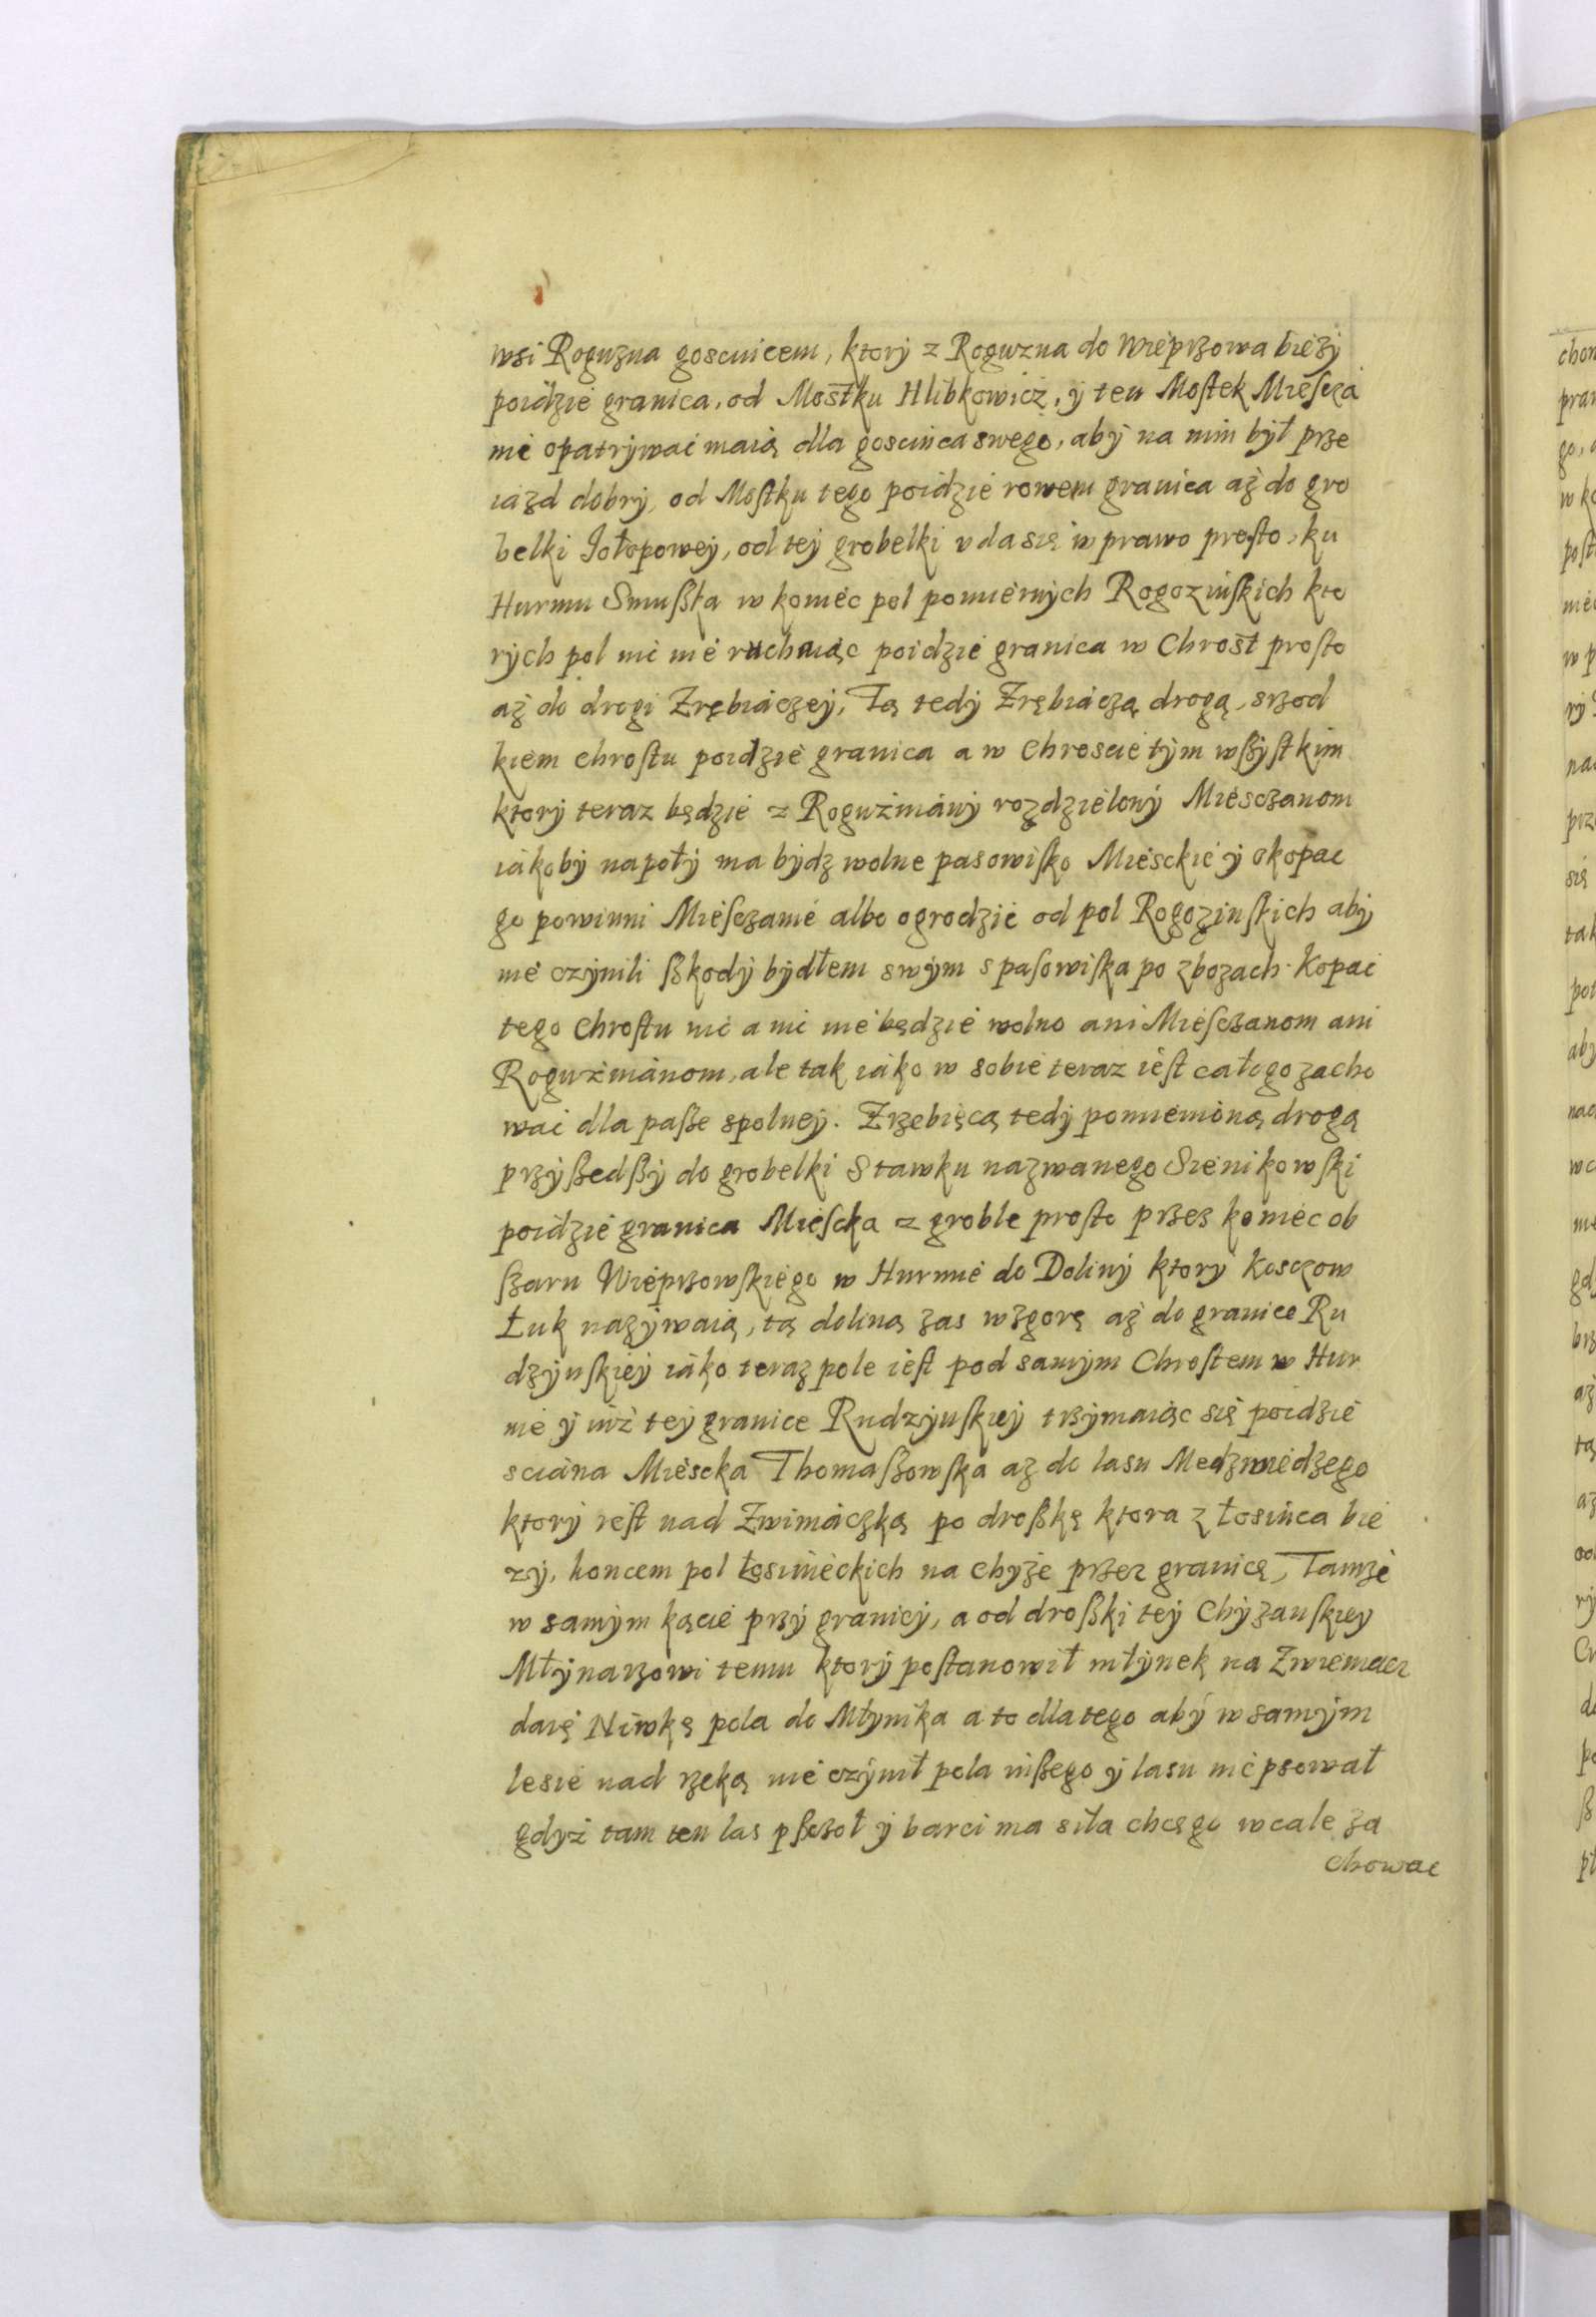 wsi Roguzna goscincem, ktory z Roguzna do Wieprzowa bieży
poidzie granica, od Mostku Hlibkowicz, y ten Mostek Miescza
nie opatrywać maią dla goscinca swego, aby na nim był prze
iazd dobry, od Mostku tego poidzie rowem granica aż do gro
belki Jołopowey, od tey grobelki vda się w prawo prosto, ku
Hurmu Smußka w koniec pol pomiernych Rogozinskich kto
rych pol nic nie ruchaiąc poidzie granica w Chrost prosto
aż do drogi Zrębiaczey, Tą tedy Zrębiaczą drogą, srzod
kiem chrostu poidzie granica a w Chroscie tym wßystkim
ktory teraz będzie z Roguźniany rozdzielony Miesczanom
iakoby napoły ma bydz wolne pasowisko Miesckie y okopac
go powinni Miesczanie albo ogrodzić od pol Rogozinskich aby
nie czynili ßkody bydłem swym s pasowiska po zbozach. Kopać
tego Chrostu nic a nic nie będzie wolno ani Miesczanom ani
Roguźnianom, ale tak iako w sobie teraz iest całogo zacho
wać dla paße spolney. Zrzebięcą tedy pomienioną drogą
przyßedßy do grobelki Stawku nazwanego Sienikowski
poidzie granica Miescka z groble prosto przez koniec ob
ßaru Wieprzowskiego w Hurmie do Doliny ktory Kosczow
Łuk nazywaią, tą doliną zas wzgorę aż do granice Ru
dzynskiey iako teraz pole iest pod samym Chrostem w Hur
mie y iuż tey granice Rudzynskiey trzymaiąc się poidzie
sciana Miescka Thomaßowska aż do lasu Medzwiedzego
ktory iest nad Zwiniaczką po droßkę ktora z Łosińca bie
zy, koncem pol Łosinieckich na chyże przez granicę, Tamże
w samym kącie przy granicy, a od droßki tey Chyżanskiey
Młynarzowi temu ktory postanowił młynek na Zwiemacz
daię Niwkę pola do Młynika a to dla tego aby w samym
lesie nad rzeką nie czynił pola nißego y lasu nie psował
gdyż tam ten las pßczoł y barci ma siła chcę go wcale za
chowac